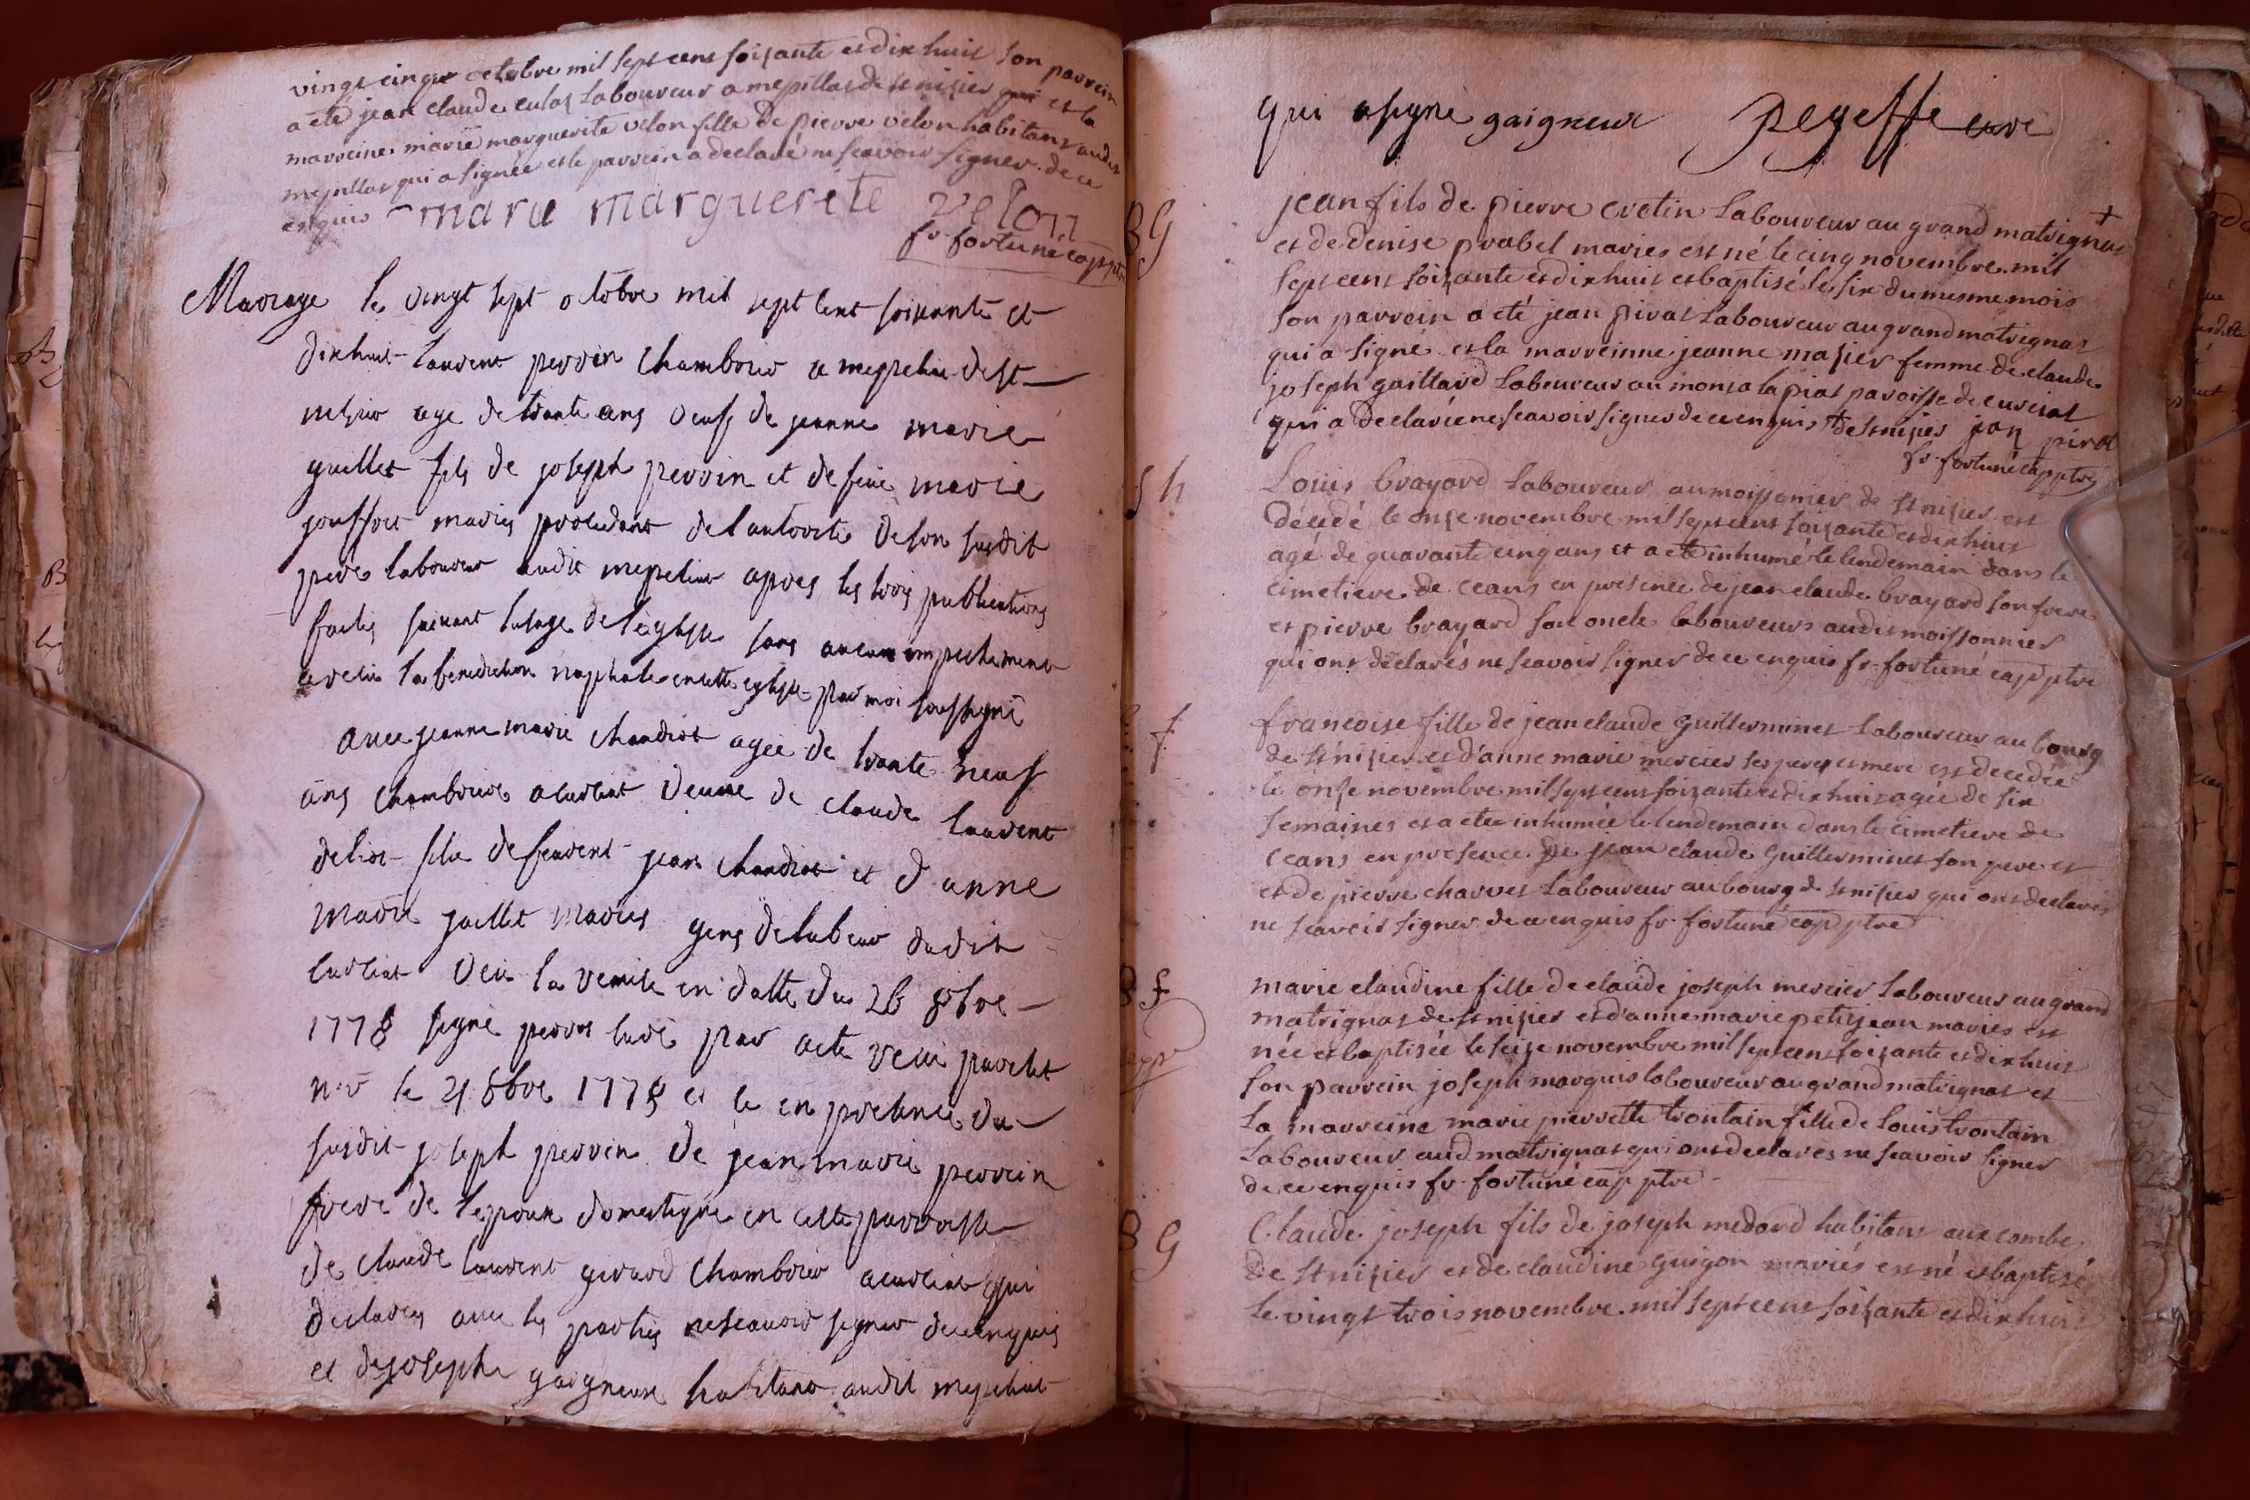 vingt cinque octobre mil sept cent soixante et dix huit son parrein
a été jean claude culas laboureur a mepillat de st nisier et la
marreine marie marguerite velon fille de pierre velon habitant audit
mepillat qui a signée et le parrein a declaré ne scavoir signer de ce
enquis marie marguerete velon
fr. fortuné cap ptre
Mariage le vingt sept octobre mil sept cent soixante et
dix huit laurent perrin chambrier a mepeliat de st
nisier age de trante ans veuf de jeanne marie
guillet fils de joseph perrin et de feue marie
mariés procedant de lautorité de son susdit
pere laboureur audit mepeliat apres les trois publications
faites suivant lusage de leglise sans aucun empechement
a recu la benediction nuptiale en cette eglise par moi soussigné
avec jeanne marie chandiot agée de trante neuf
ans chambriere a curciat veuve de claude laurent
fille de feu jean chandiot et d anne
marie guillet mariés gens de labeur dudit
curciat veu la remise en datte du 26 8bre
1778 signé curé par acte receu
le 21 8bre 1778 et ce en presence du
susdit joseph perrin de jean marie perrin
frere de lepoux domestique en cette parroisse
de claude laurent girard chambrier a curciat qui
declarés avec les parties ne scavoir signer de ce enquis
et de joseph gaigneux habitant audit mepeliat
qui a signé gaigneux curé
B G
jean fils de pierre cretin laboureur au grand matrignat +
et de denise prabel mariés est né le cinq novembre mil
sept cent soixante et dix huit et baptisé le six du mesme mois
son parrein a été jean pirat laboureur au grand matrignat
qui a signé et la marreinne jeanne masier femme de claude
joseph gaillard laboureur au mont a la piat paroisse de curciat
qui a declarée ne scavoir signer de ce enquis + de st nisier jan pirat
fr. fortuné cap ptre
S h
Louis brayard laboureur au moissonnier de st nisier est
décédé le onze novembre mil sept cent soixante et dix huit
agé de quarante cinq ans et a été inhumé le lendemain dans le
cimetiere de ceans en présence de jean claude brayard son frere
et pierre brayard son oncle laboureurs audit moissonnier
qui ont déclarés ne scavoir signer de ce enquis fr. fortuné cap ptre
S f
francoise fille de jean claude Guillerminet laboureur au bourg
de st nisier et d'anne marie mercier ses pere et mere est decedée
le onze novembre mil sept cent soixante et dix huit agée de six
semaines et a été inhumée le lendemain dans le cimetiere de
ceans en presence de jean claude Guillerminet son pere et
et de pierre charvet laboureur au bourg de st nisier qui ont declarés
ne scavoir signer de ce enquis fr. fortuné cap ptre
B f
marie claudine fille de claude joseph mercier laboureur au grand
matrignat de st nisier et d'anne marie petitjean mariés est
née et baptisée le seize novembre mil sept cent soixante et dix huit
son parrein joseph marquis laboureur au grand matrignat et
la marreine marie pierrette trontain fille de louis trontain
laboureur aud matrignat qui ont declarés ne scavoir signer
de ce enquis fr. fortuné cap ptre
B G
Claude joseph fils de joseph medard habitant aux combe
de st nisier et de claudine guigon mariés est né et baptisé
le vingt trois novembre mil sept cent soixante et dix huit